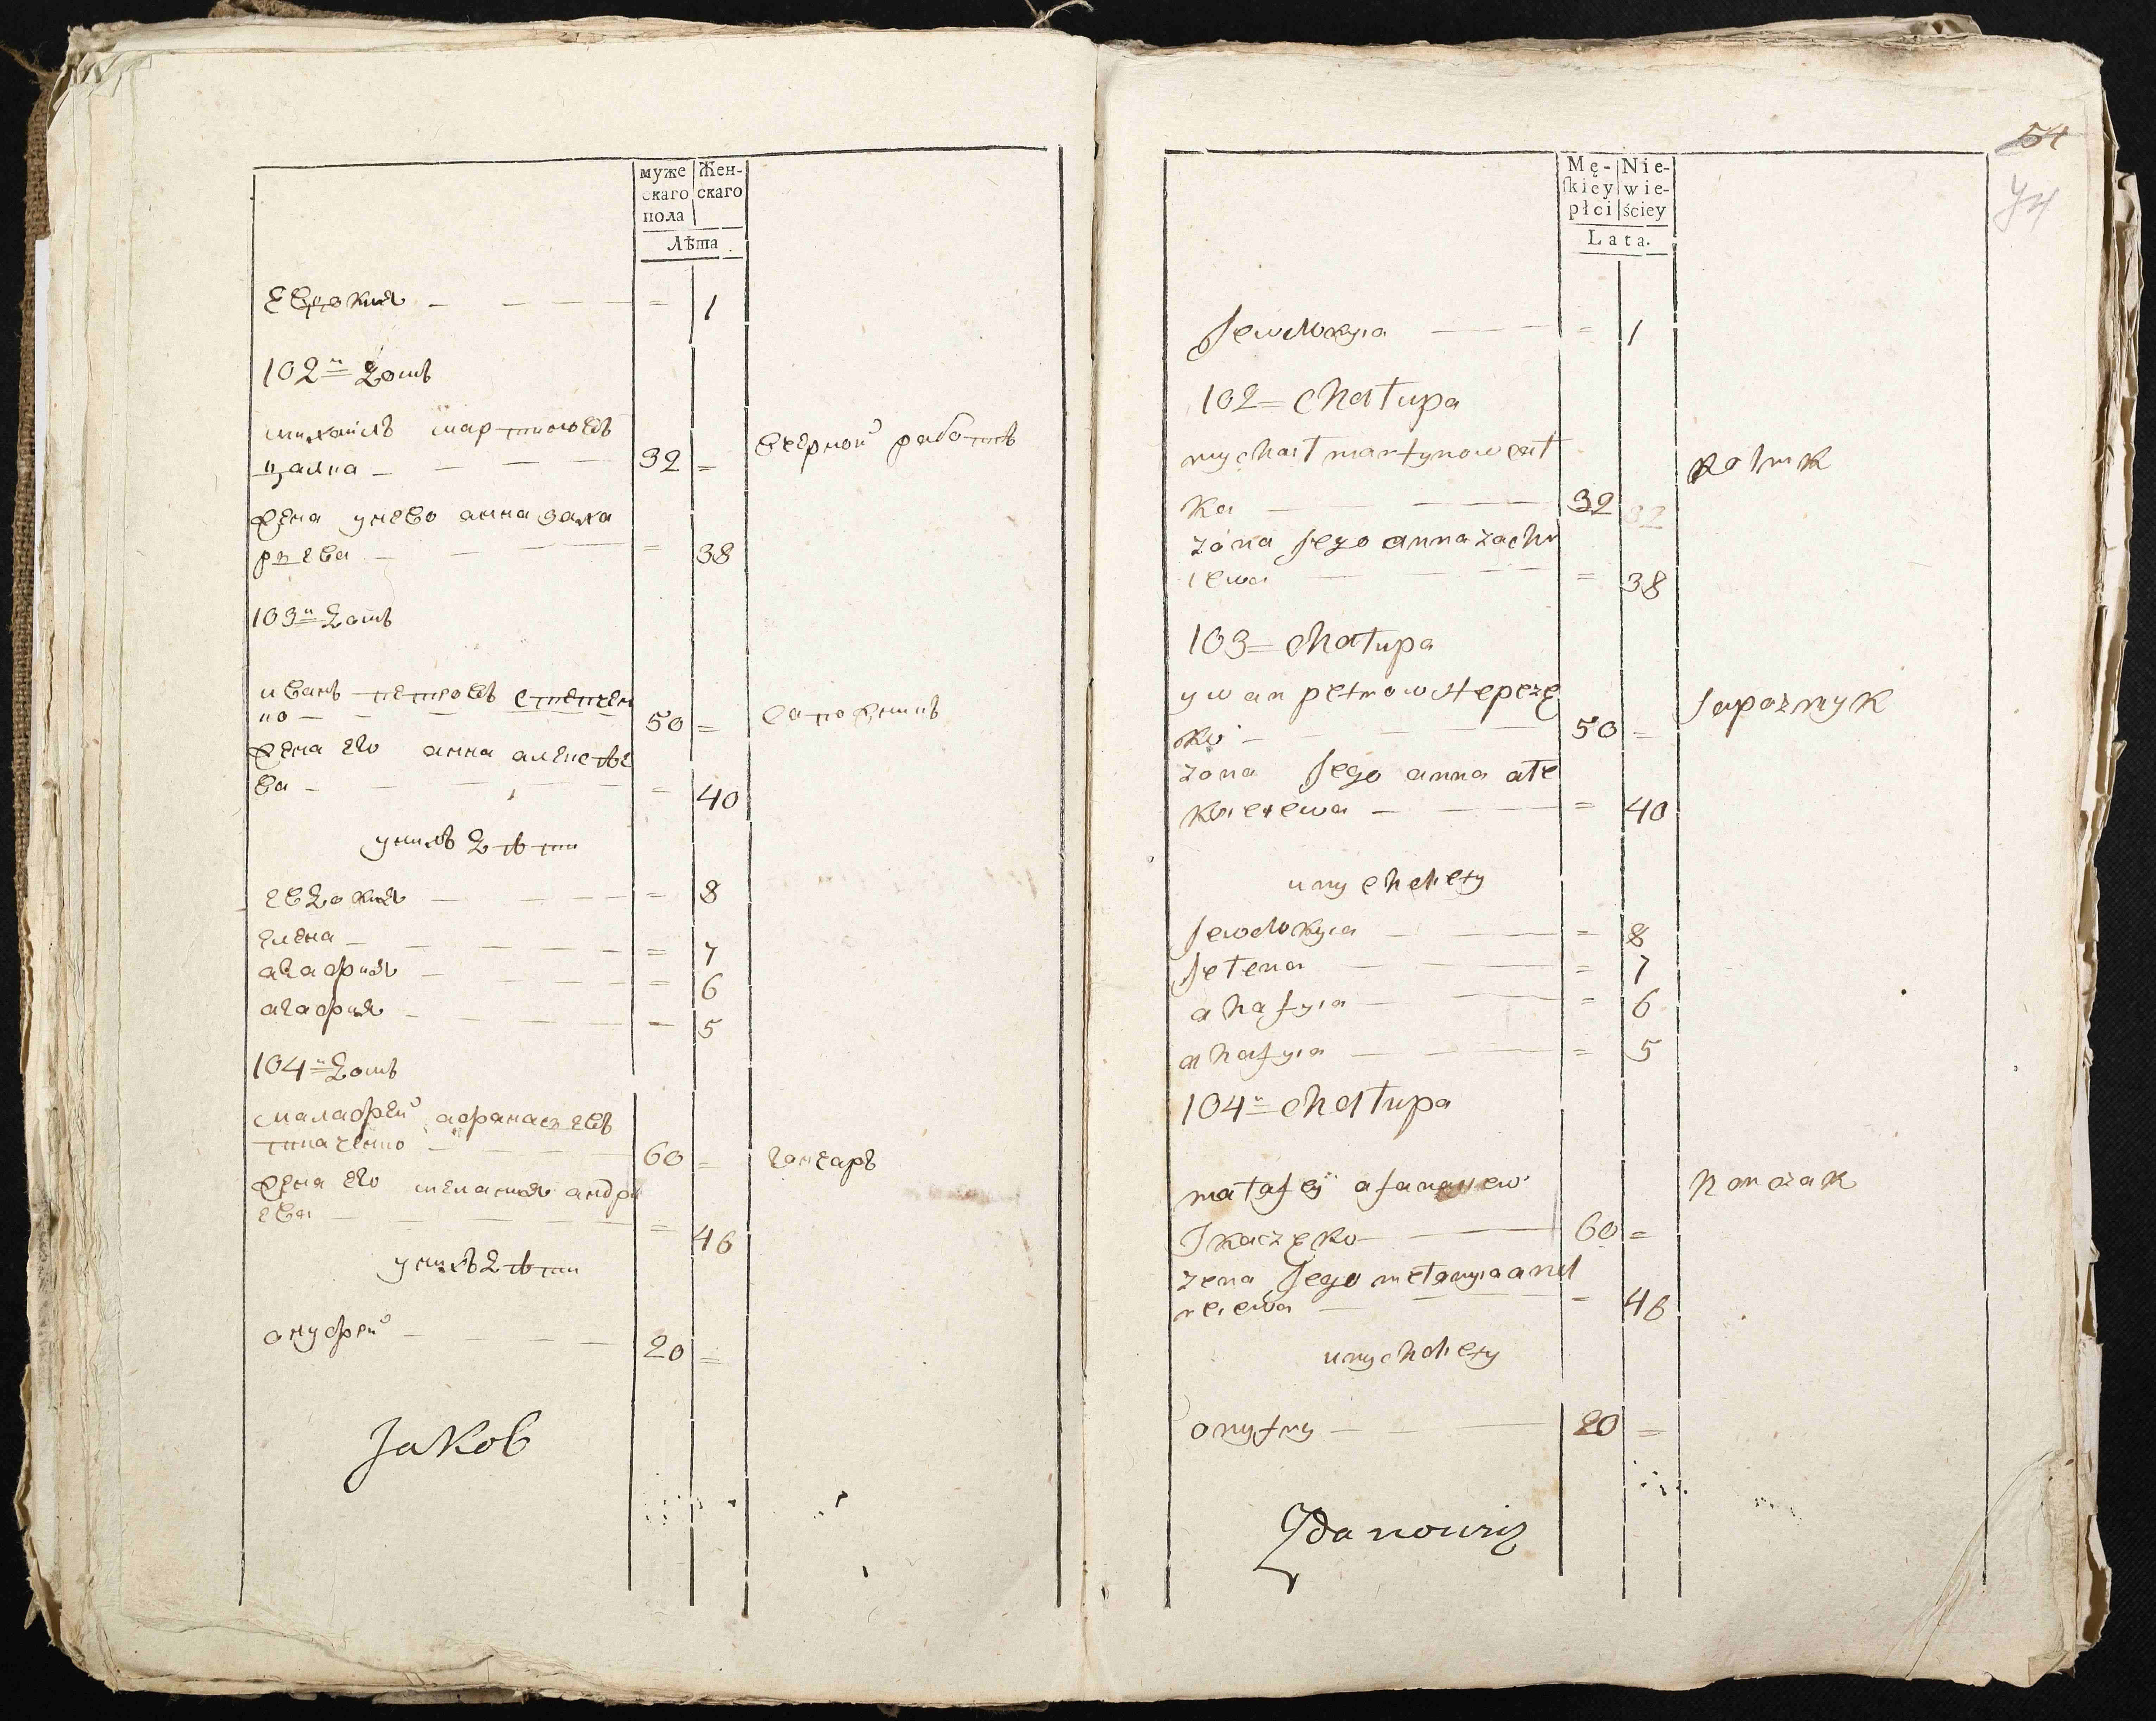 муже
скаго
пола
Жен-
скаго
Лѣта
евдокия — — — — = 1
102й домъ
михайлъ мартиновъ
цалка — — — — 32 =
вчерной работѣ
жена унево анна заха
рьева — — = 38
103й домъ
иванъ петровъ степчен
ко — — — — 50 =
сапожникъ
жена его анна алексѣе
ва — — — — = 40
унихъ дѣти
евдокия — — — — = 8
елена — — — — = 7
агафия — — — — = 6
агафия — — — — = 5
104й домъ
малафей афанасьевъ
ткаченко — — — 60 =
гончаръ
жена его мелания андри
ева — — — — = 46
унихъ дѣти
онуфрей — — — — 20 =
Jakob
54
74
Mę-
skiey
płci
Nie-
wie-
ściey
Lata.
Jewdokyia — — = 1
102 = chałupa
mychaił martynow cał
ka — — — 32
Rolnik
żona Jego anna zachr
iewa — — — = 38
103 = chałupa
ywan petrow stepczę
ko — — — 50 =
Sapoznyk
zona Jego anna ałe
ksieiewa — — = 40
unych diety
Jewdokyia — — = 8
Jełena — — = 7
ahafyia — — = 6
ahafyia — — = 5
104й = chałupa
małafeÿ afanasiew
Tkaczęko — — 60 =
honczak
zena Jego mełanyia and
reiewa — — = 46
unych diety
onyfry — — — 20 =
Zdanowicz